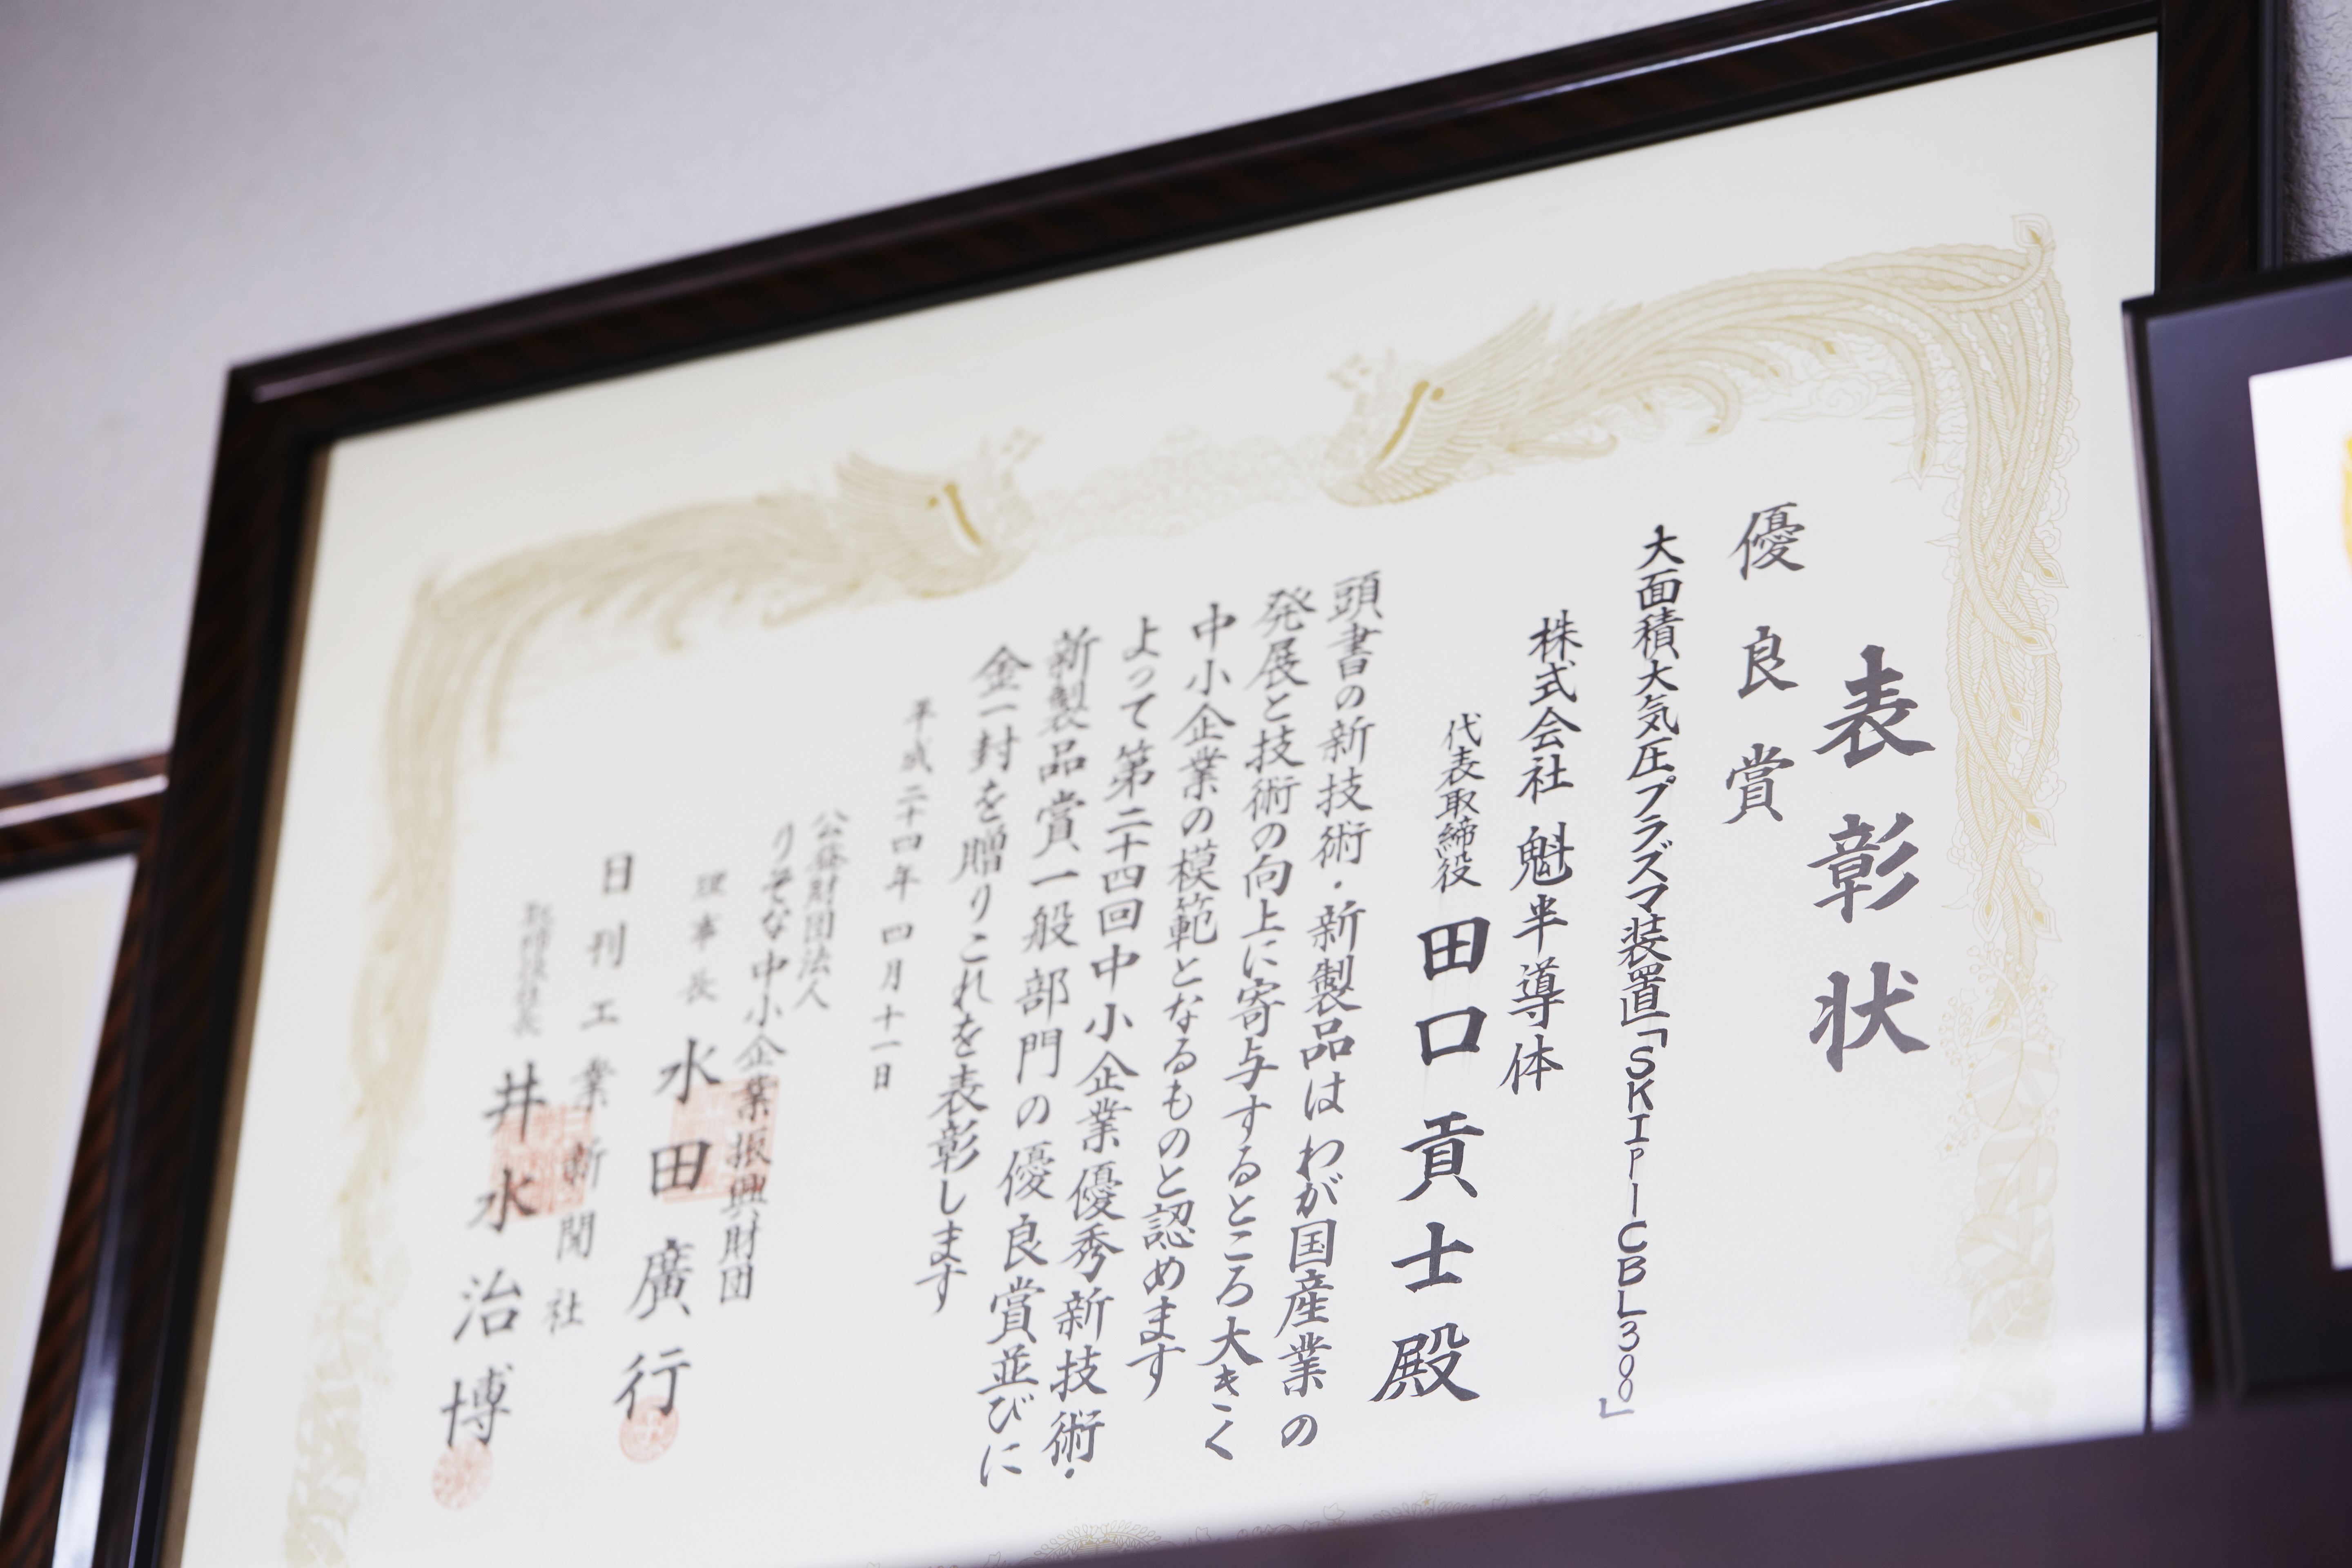 表彰状
優良賞
大面積大気圧プラズマ装置「SKIP-ICBL300」
株式会社 魁半導体
代表取締役 田口貢士殿
頭書の新技術・新製品はわが国産業の
発展と技術の向上に寄与するところ大きく
中小企業の模範となるものと認めます
よって第二十四回中小企業優秀新技術・
新製品賞一般部門の優良賞並びに
金一封を贈りこれを表彰します
平成二十四年四月十一日
公益財団法人
りそな中小企業振興財団
理事長 水田廣行
日刊工業新聞社
井水治博